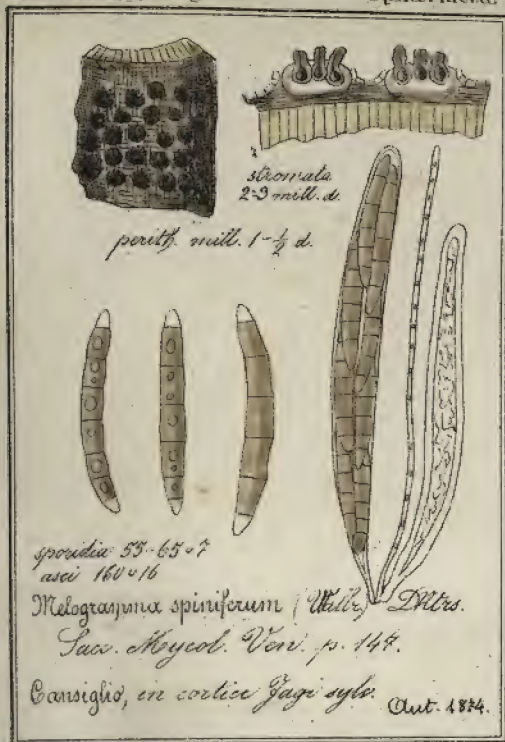 stromata
2-3 mill. d.
perith. mill. 1-½ d.
sporidia 55-65 = 7
asci 160 = 16
Melogramma spiniferum (Wallr) DNtrs.
Sacc. Mycol. Ven. p. 147.
Cansiglio, in cortice Fagi sylv.
Aut. 1874.